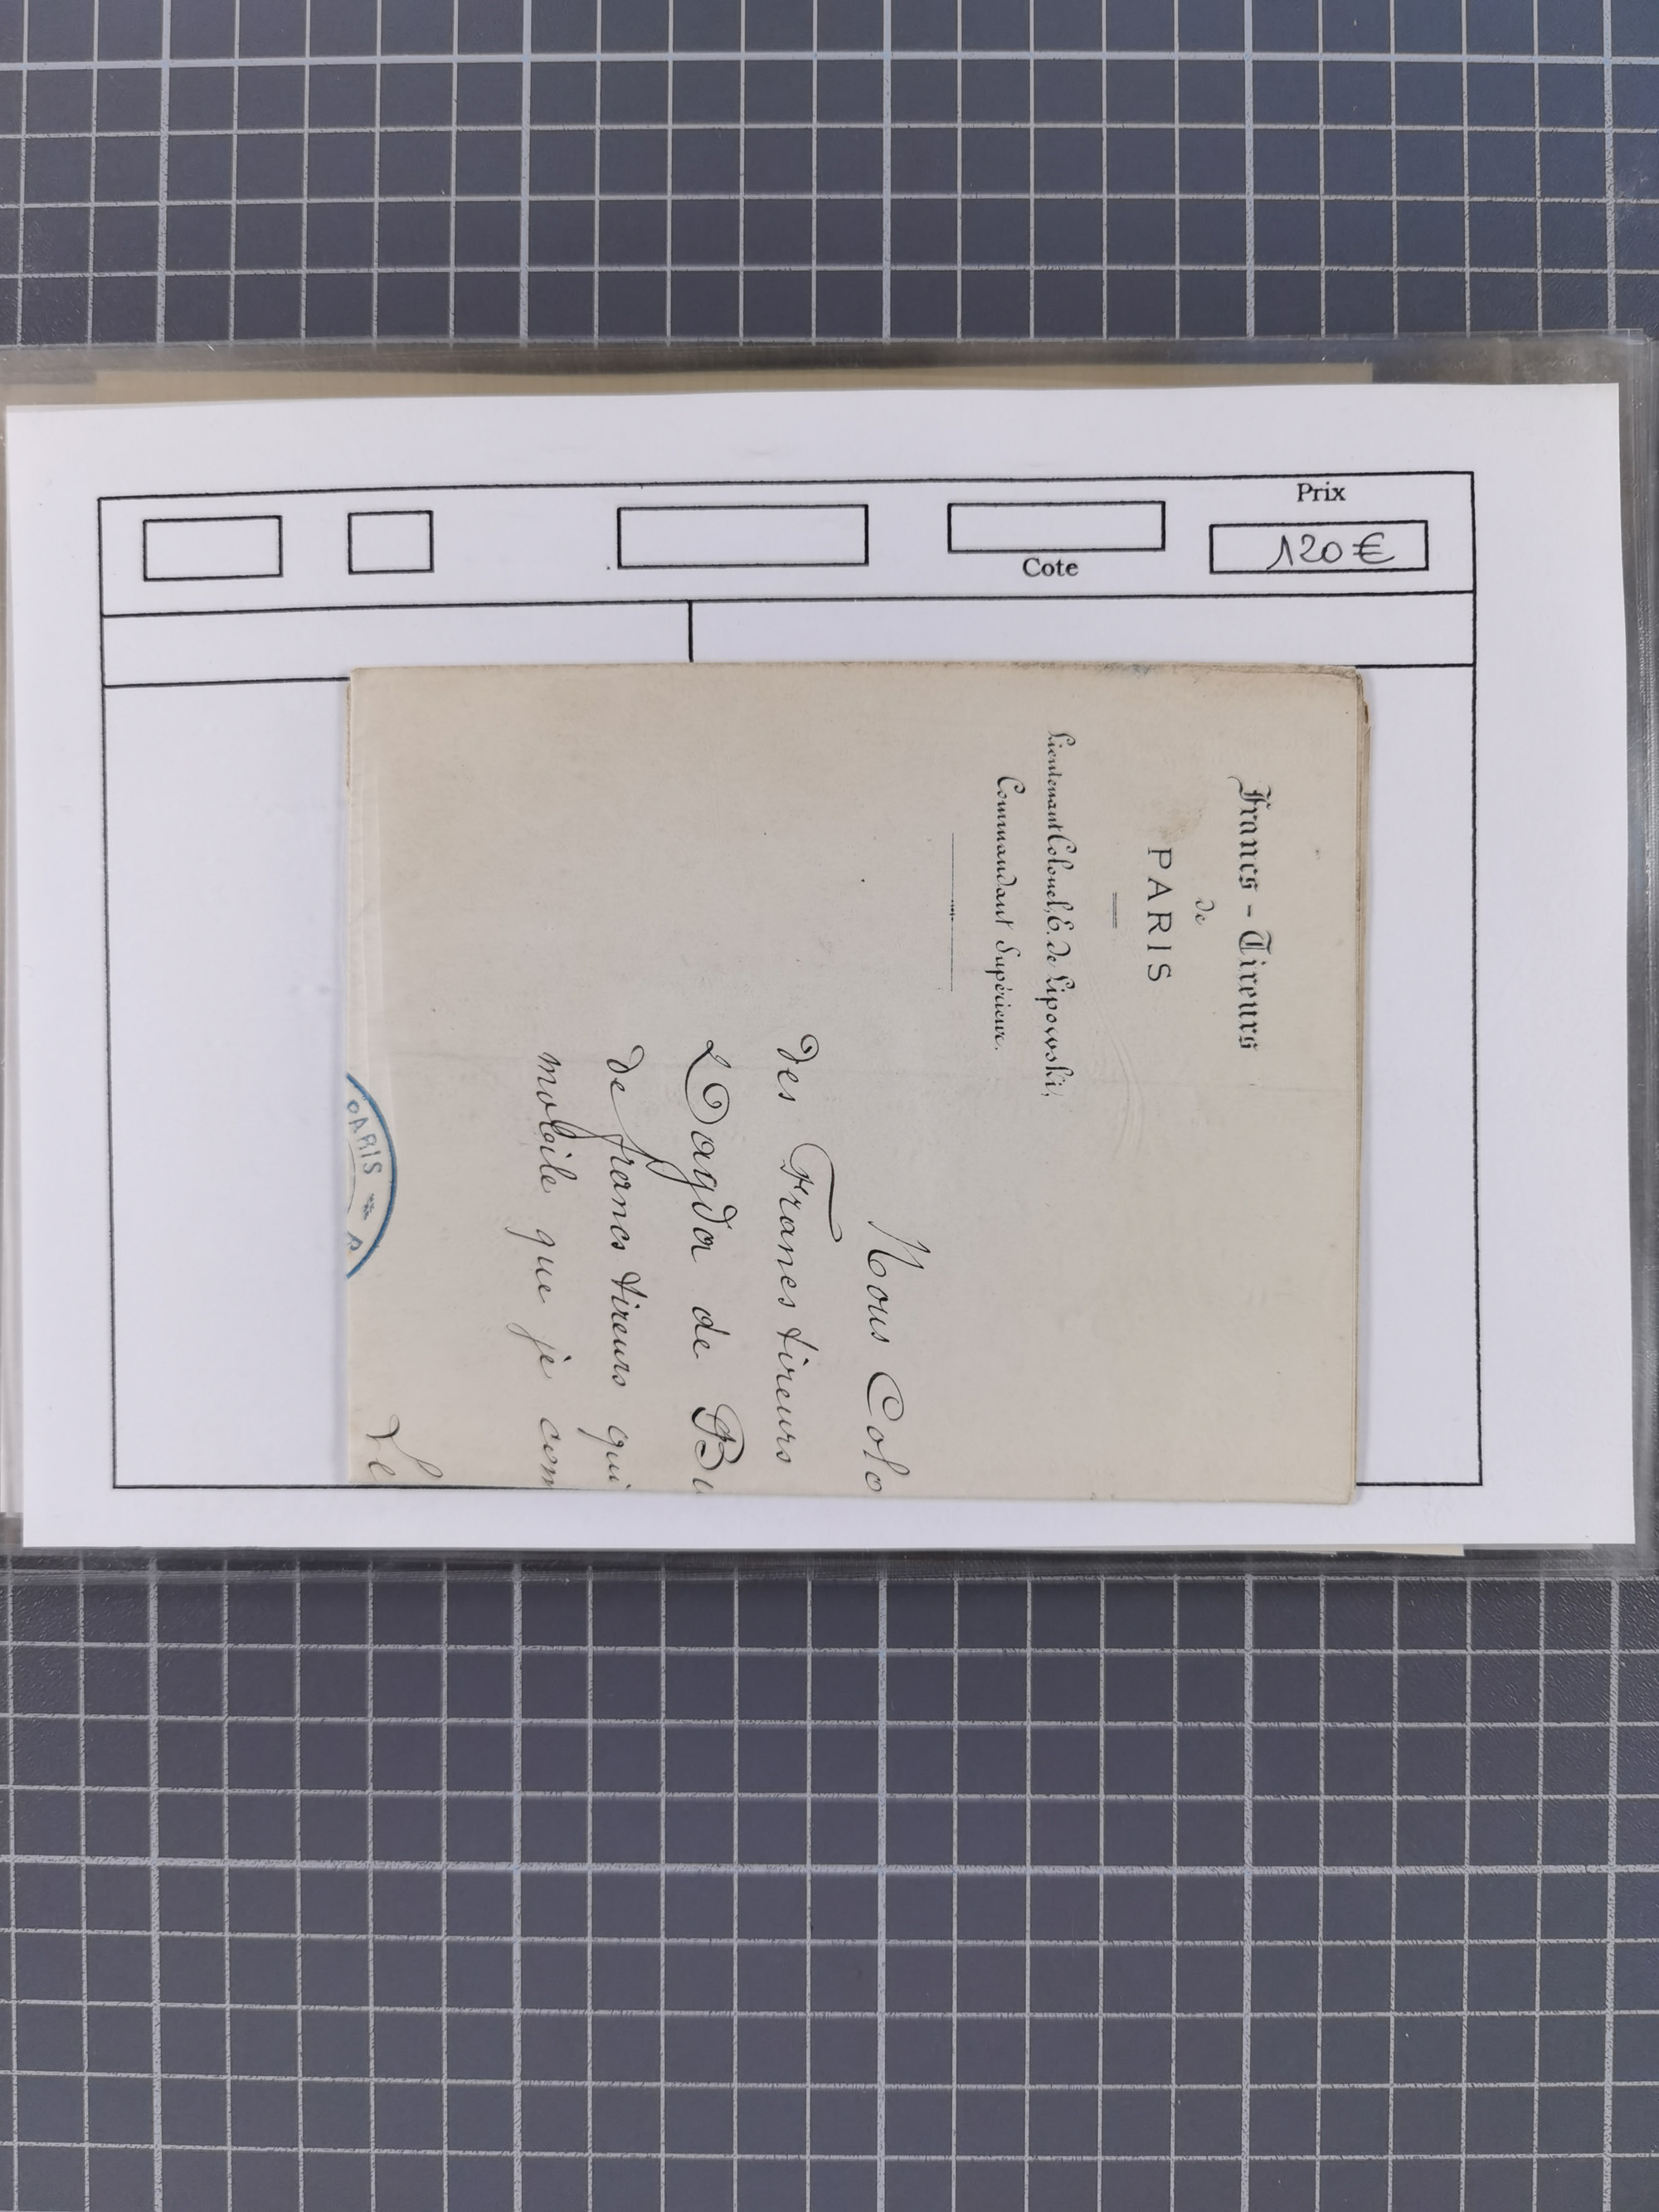 Prix
120 €
Cote
Francs - Tireurs
de
PARIS
Lieutenant Colonel, E. de Lipowski,
Commandant Supérieur.
Nous Colo
des Francs tireurs
Dagda de Bu
de francs tireurs qui
mobile que je com
Le
PARIS *